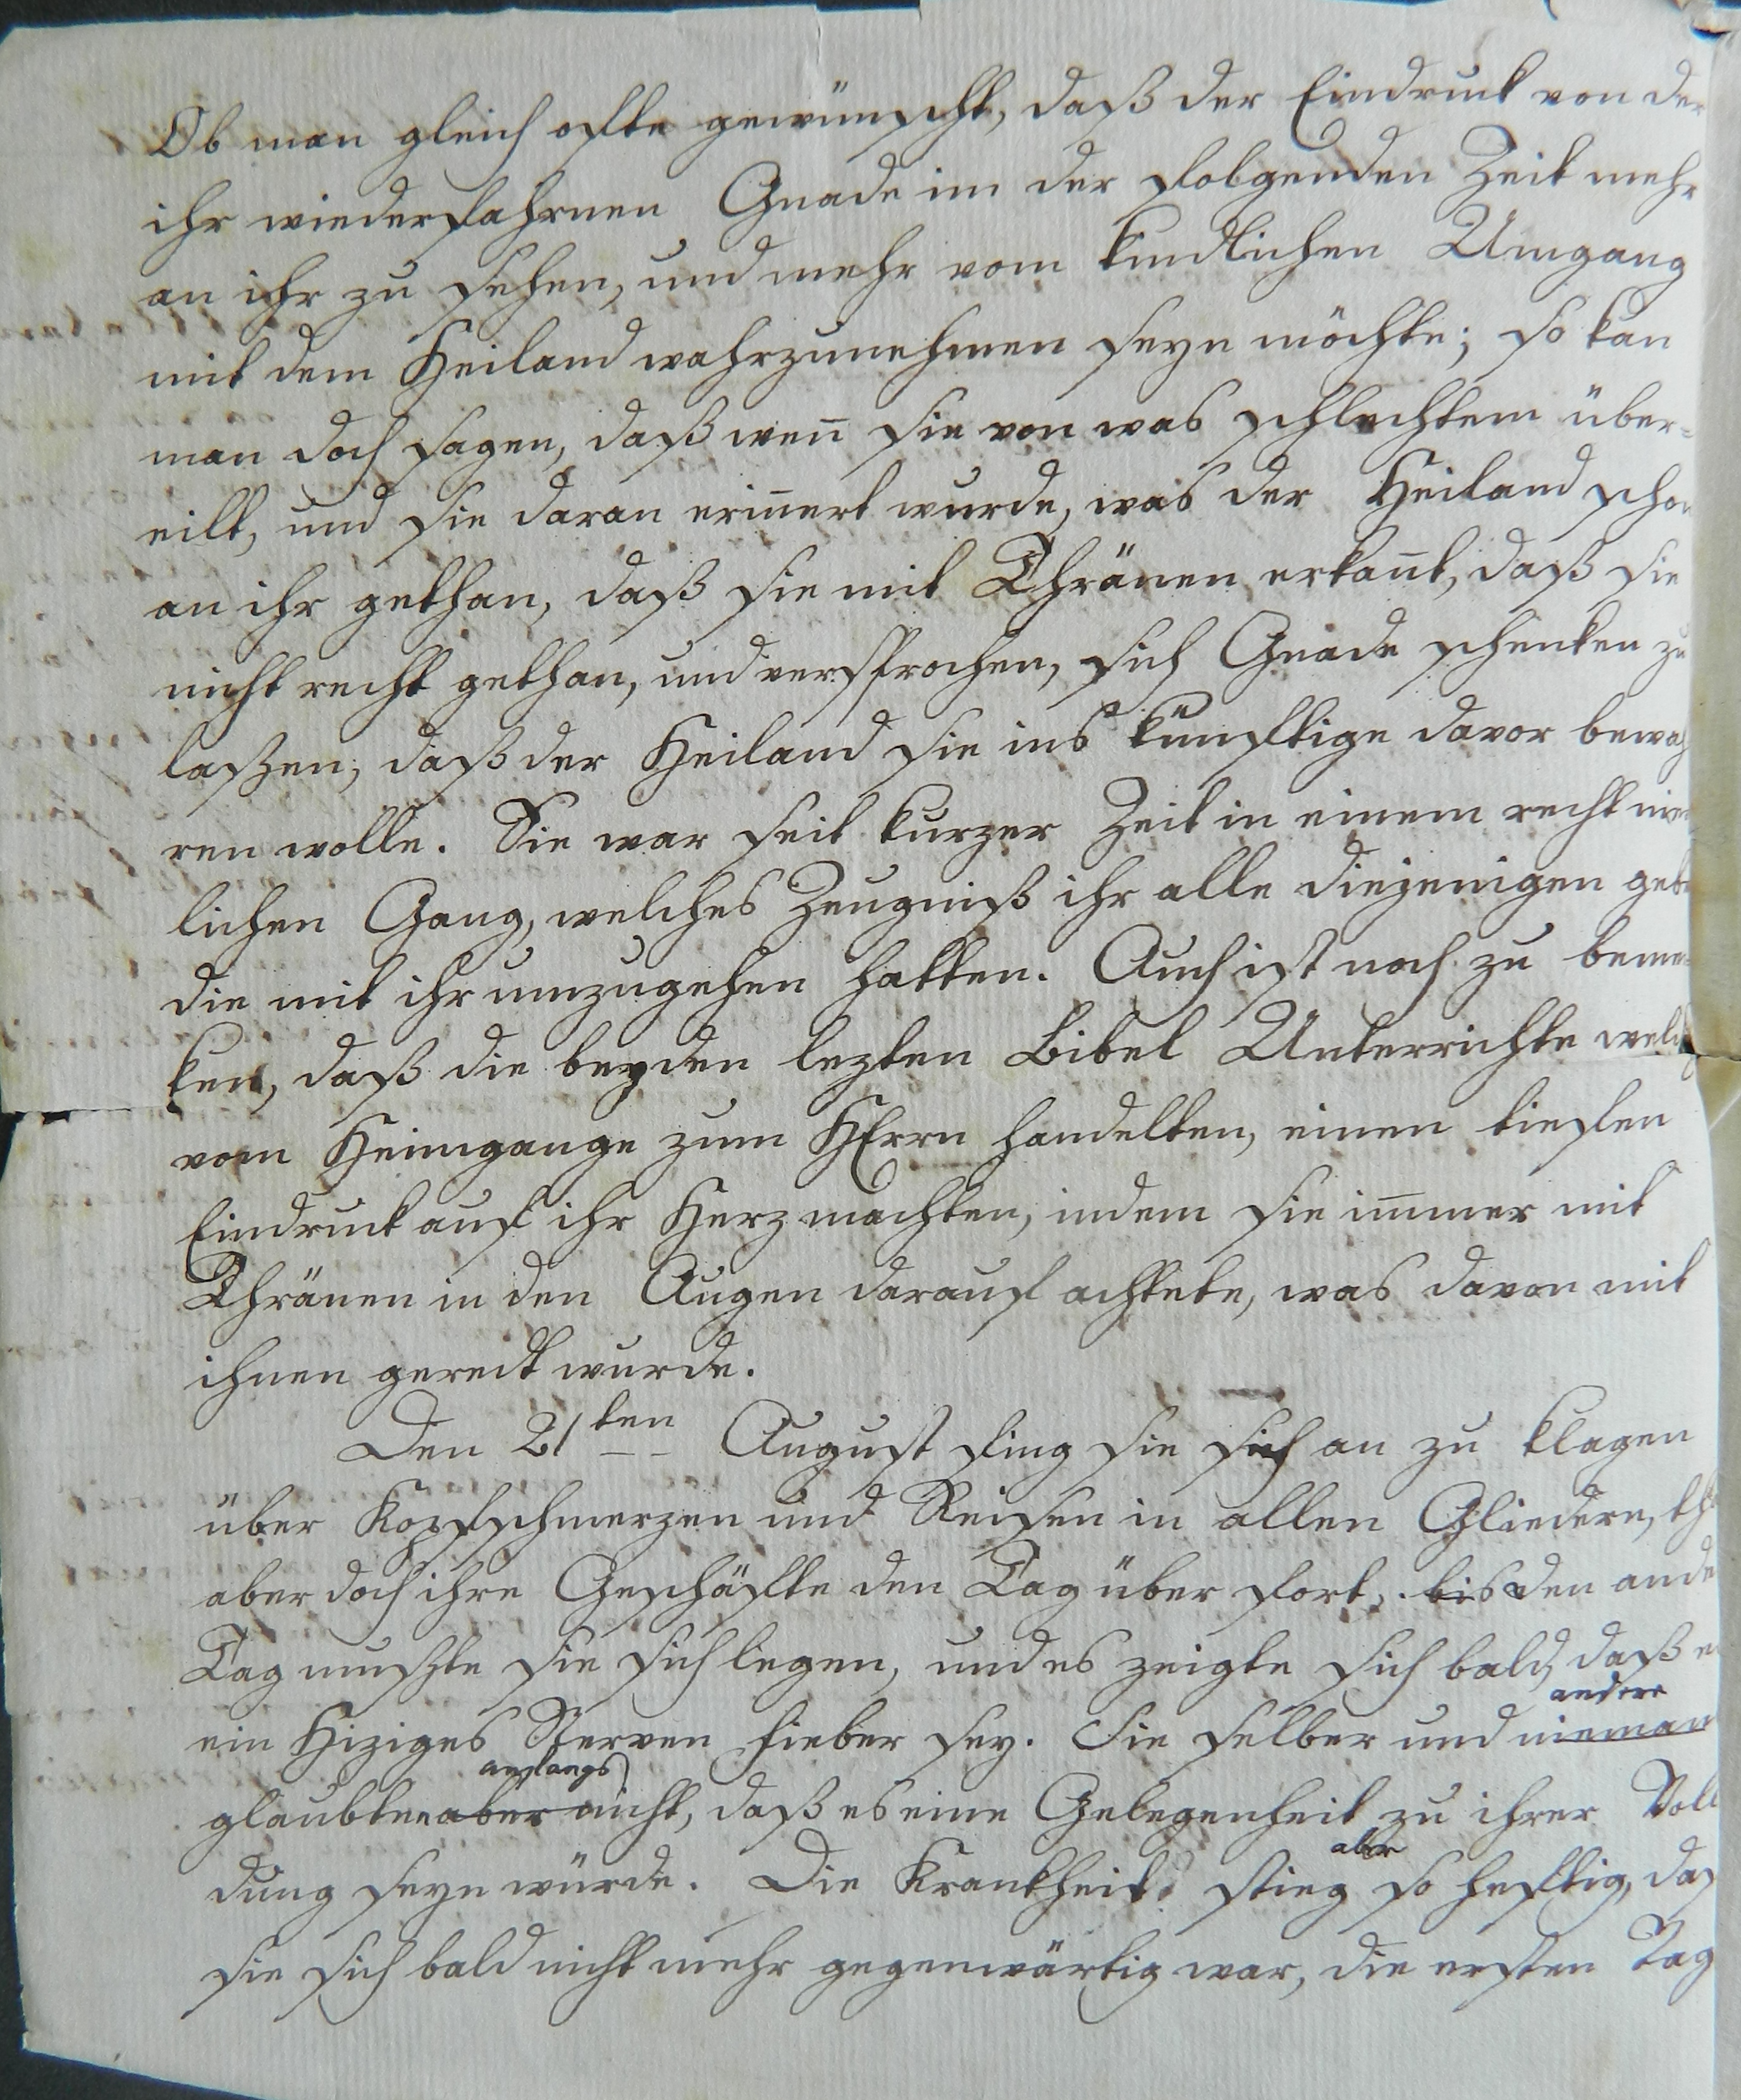 Ob man gleich ofte gewünscht, daß der Eindruck von der
ihr wiederfahrnen Gnade in der folgenden Zeit mehr
an ihr zu sehen, und mehr vom kindlichen Umgang
mit dem Heiland wahrzunehmen seyn möchte; so kan
man doch sagen, daß wen̄ sie von was schlechtem über=
eilt, und sie daran erin̄ert wurde, was der Heiland schon
an ihr gethan, daß sie mit Thränen erkan̄t, daß sie
nicht recht gethan, und versprochen, sich Gnade schenken zu
laßen, daß der Heiland sie ins künftige davor bewah
ren wolle. Sie war seit kurzer Zeit in einem recht
lichen Gang, welches Zeugniß ihr alle diejenigen gebe
die mit ihr umzugehen hatten. Auch ist noch zu bemer
ken, daß die beyden lezten Bibel Unterrichte welch
vom Heimgange zum HErrn handelten, einen tiefen
Eindruck auf ihr Herz machten, indem sie im̄er mit
Thränen in den Augen darauf achtete, was davon mit
ihnen geredt wurde.
Den 21ten August fing sie sich an zu klagen
über Kopfschmerzen und Reisen in allen Gliedern, th
aber doch ihre Geschäfte den Tag über fort, bis den ande
Tag mußte sie sich legen, und es zeigte sich bald, daß e
andere
ein Hiziges Nerven fieber sey. Sie selber und nieman
anfangs
glaubten aber nicht, daß es eine Gelegenheit zu ihrer Voll
aber
dung seyn würde. Die Krankheit stieg so heftig, daß
sie sich bald nicht mehr gegenwärtig war, die ersten Tag